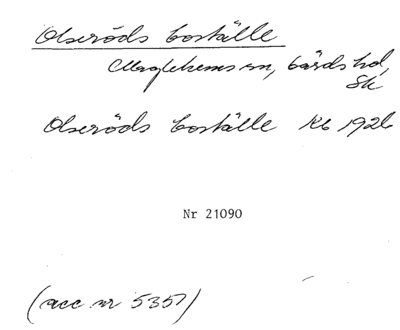 Olseröds boställe
Maglehems sn, Gärds hd,
Sk
Olseröds boställe Kb 1926
Nr 21090
(acc nr 5357)